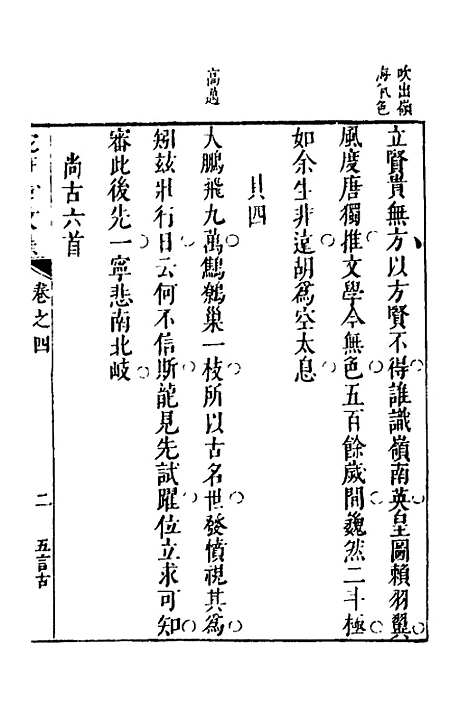 吹出嶺
海氣色
立賢貴無方以方賢不得誰識嶺南英皇圖賴羽翼
風度唐獨推文學今無色五百餘歲間巍然二斗極
如余生非遠胡爲空太息
高邁
其四
大鵬飛九萬鷦鷯巢一枝所以古名世發憤視其爲
矧茲壯行日云何不信斯龍見先試躍位立求可知
審此後先一寧悲南北岐
尚古六首
卷之四
二
五言古